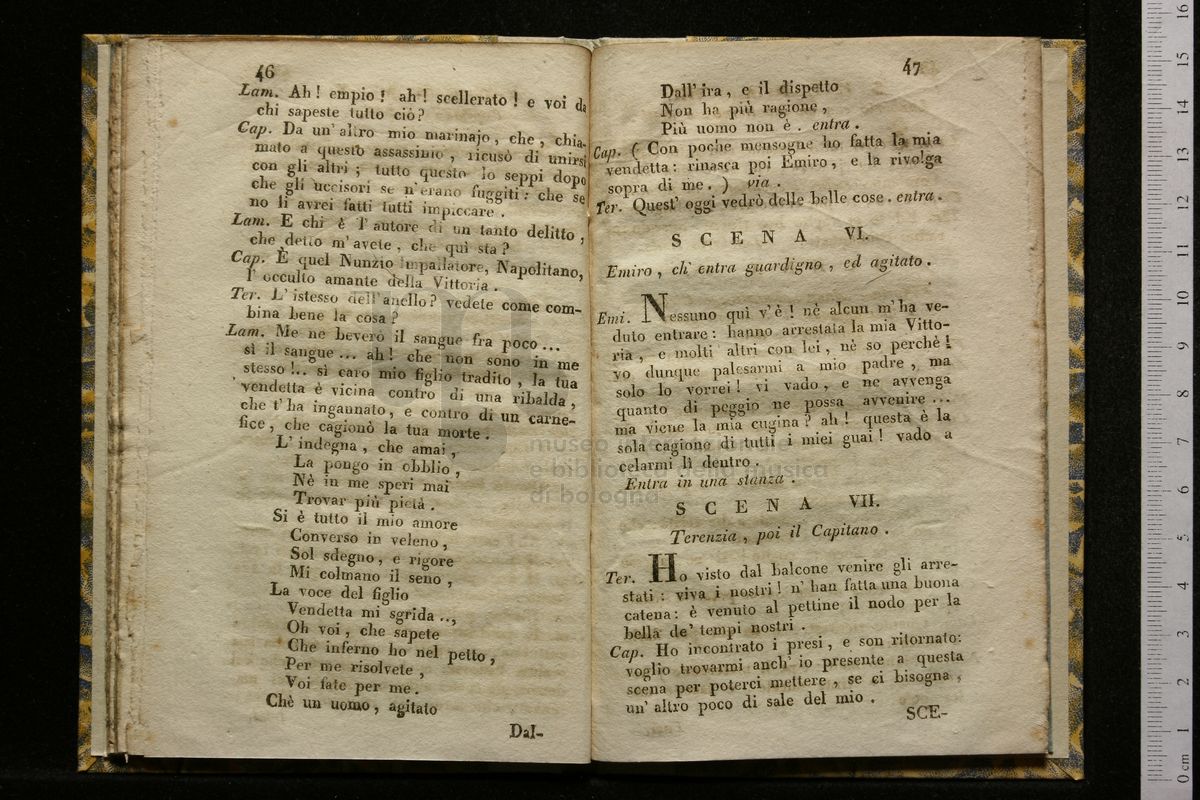 46
Lam. Ah! empio! ah! scellerato! e voi da
chi sapeste tutto ciò?
Cap. Da un' altro mio marinajo, che, chia-
mato a questo assassinio, ricusò di unirsi
con gli altri; tutto questo lo seppi dopo
che gli uccisori se n'erano fuggiti: che se
no li avrei fatti tutti impiccare.
Lam. E chi è l'autore di un tanto delitto,
che detto m'avete, che quì sta?
Cap. È quel Nunzio Impallatore, Napolitano,
l' occulto amante della Vittoria.
Ter. L'istesso dell'anello? vedete come com-
bina bene la cosa?
Lam. Me ne beverò il sangue fra poco...
sì il sangue... ah! che non sono in me
stesso!.. sì caro mio figlio tradito, la tua
vendetta è vicina contro di una ribalda,
che t'ha ingannato, e contro di un carne-
fice, che cagionò la tua morte.
L'indegna, che amai,
La pongo in obblio,
Nè in me speri mai
Trovar più pietà.
Si è tutto il mio amore
Converso in veleno,
Sol sdegno, e rigore
Mi colmano il seno,
La voce del figlio
Vendetta mi sgrida..,
Oh voi, che sapete
Che inferno ho nel petto,
Per me risolvete,
Voi fate per me.
Chè un uomo, agitato
Dal-
47
Dall'ira, e il dispetto
Non ha più ragione,
Più uomo non è. entra.
Cap. (Con poche mensogne ho fatta la mia
vendetta: rinasca poi Emiro, e la rivolga
sopra di me.) via.
Ter. Quest' oggi vedrò delle belle cose. entra.
SCENA VI.
Emiro, ch' entra guardigno, ed agitato.
Emi. Nessuno quì v'è! nè alcun m'ha ve-
duto entrare: hanno arrestata la mia Vitto-
ria, e molti altri con lei, nè so perchè!
vo dunque palesarmi a mio padre, ma
solo lo vorrei! vi vado, e ne avvenga
quanto di peggio ne possa avvenire...
ma viene la mia cugina? ah! questa è la
sola cagione di tutti i miei guai! vado a
celarmi lì dentro.
Entra in una stanza.
SCENA VII.
Terenzia, poi il Capitano.
Ter. Ho visto dal balcone venire gli arre-
stati: viva i nostri! n' han fatta una buona
catena: è venuto al pettine il nodo per la
bella de' tempi nostri.
Cap. Ho incontrato i presi, e son ritornato:
voglio trovarmi anch' io presente a questa
scena per poterci mettere, se ci bisogna,
un' altro poco di sale del mio.
SCE-
museo internazionale
e biblioteca della musica
di bologna
0 cm 1 2 3 4 5 6 7 8 9 10 11 12 13 14 15 16